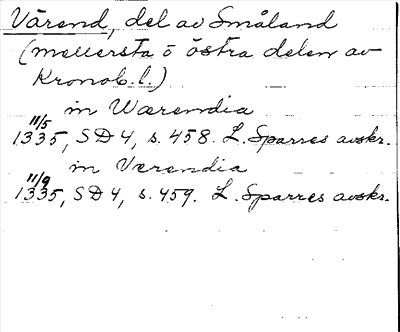 Värend, del av Småland
(mellersta o östra delen av
Kronob. l.)
in Wærendia
11/5 1335, SD 4, s. 458. L. Sparres avskr.
in Verendia
11/9 1335, SD 4, s. 459. L. Sparres avskr.